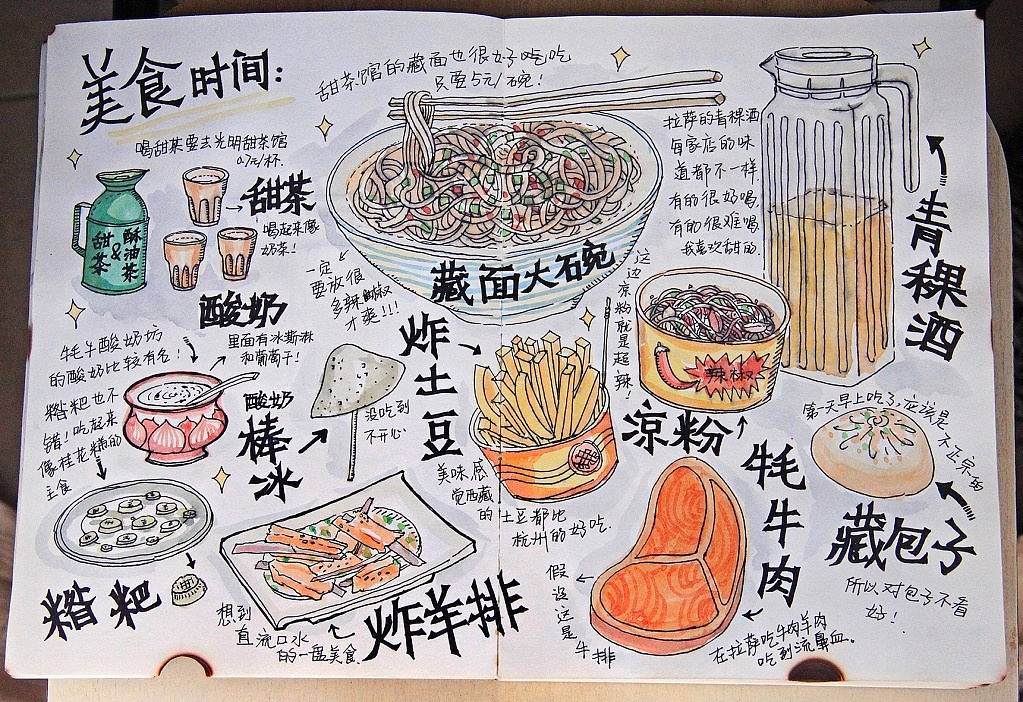 美食时间:
甜茶馆的藏面也很好吃吃
只要5元/碗!
喝甜茶要去光明甜茶馆
0.7元/杯.
甜茶
喝起来像
奶茶!
甜茶
&
酥油茶
藏面大碗
一定
要放很
多辣椒
才爽!!!
拉萨的青稞酒
每家店的味
道都不一样.
有的很好喝,
有的很难喝.
我喜欢甜的.
青稞酒
酸奶
牦牛酸奶坊
的酸奶比较有名!
里面有冰斯淋
和葡萄干!
糌粑也不
错!吃起来
像桂花糕的
主食
糌粑
酸奶
棒冰
没吃到
不开心
炸土豆
美味感
觉西藏
的土豆都比
杭州的好吃.
这边凉粉就是超辣!
辣椒
凉粉
牦牛肉
假设这是牛排
在拉萨吃牛肉羊肉
吃到流鼻血.
第一天早上吃了,应该是
不正宗的
藏包子
所以对包子不看
好!
炸羊排
想到
直流口水
的一盘美食.